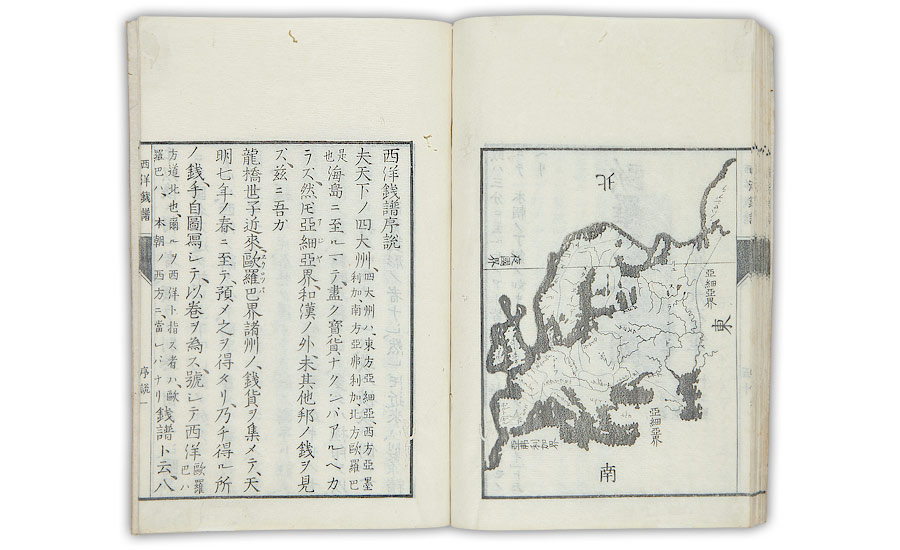 北
夜國界
亞細亞界
東
亞細亞界
亞弗利加界
南
西洋銭譜序説
夫天下ノ四大州、四大州ハ、東方亞細亞、西方亞墨
利加、南方亞弗利加、北方歐羅巴
是也海島ニ至ルマテ、盡ク寶貨ナクンバアルヘカ
ラズ、然𪜈亞細亞界、和漢ノ外、未其他邦ノ銭ヲ見
ズ、兹ニ吾カ
龍橋世子近來歐羅巴界諸州ノ銭貨ヲ集メテ、天
明七年ノ春ニ至テ、預メ之ヲ得タリ、乃チ得ル所
ノ銭、手自圖寫シテ、以卷ヲ為ス、號シテ西洋歐羅巴ハ
方道北也、爾ルヲ西洋ト指ス者ハ、歐
羅巴ハ、本朝ノ西方ニ、當レバナリ銭譜ト云、八
西洋銭譜 序説一